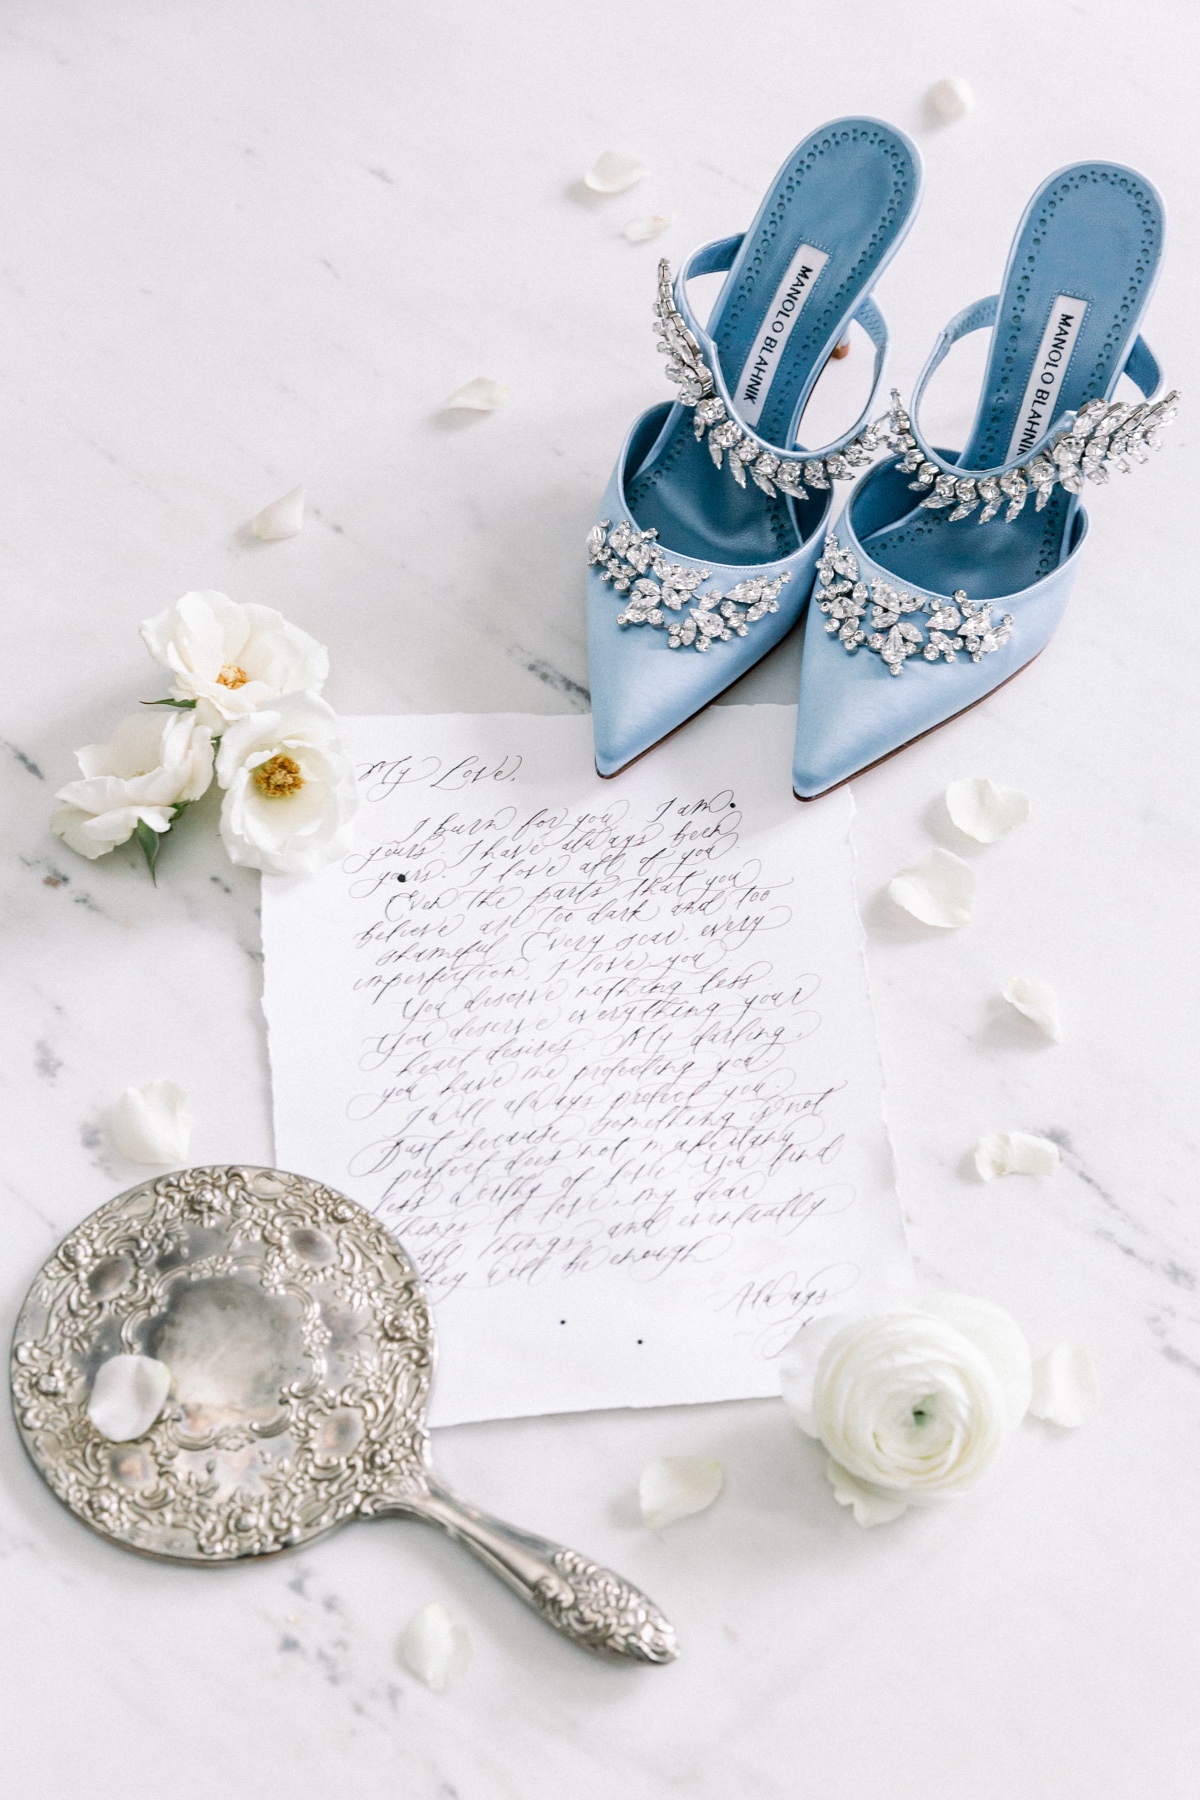 MANOLO BLAHNIK
MANOLO BLAHNIK
My Love,
I burn for you. I am
yours. I have always been
yours. I love all of you.
Even the parts that you
believe are too dark and too
shameful. Every scar. every
imperfection. I love you.
You deserve nothing less.
You deserve everything your
heart desires. My darling,
you have me protecting you.
I will always protect you.
Just because something is not
perfect does not make it any
less worthy of love. You find
things to love, my dear
all things, and eventually
they will be enough
Always